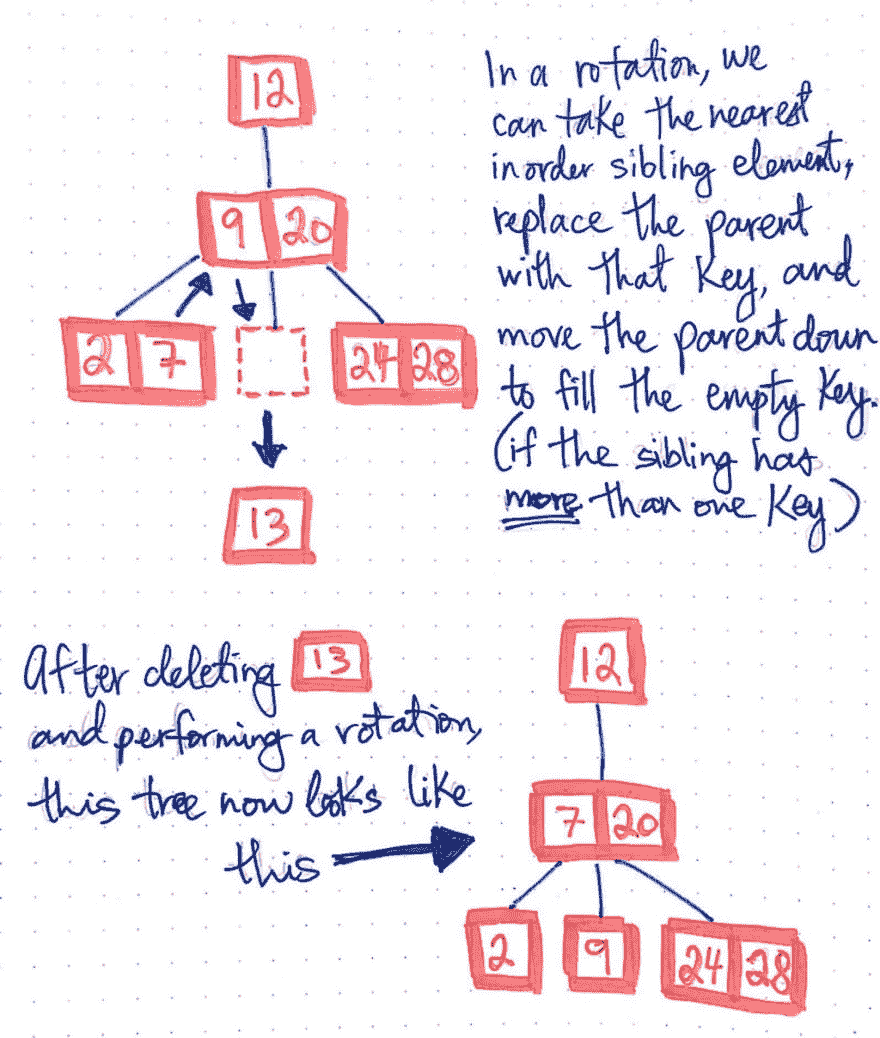 12
9 20
2 7 24 28
13
In a rotation, we
can take the nearest
inorder sibling element,
replace the parent
with that key, and
move the parent down
to fill the empty key.
(if the sibling has
more than one key)
After deleting 13
and performing a rotation,
this tree now looks like
this
12
7 20
2 9 24 28